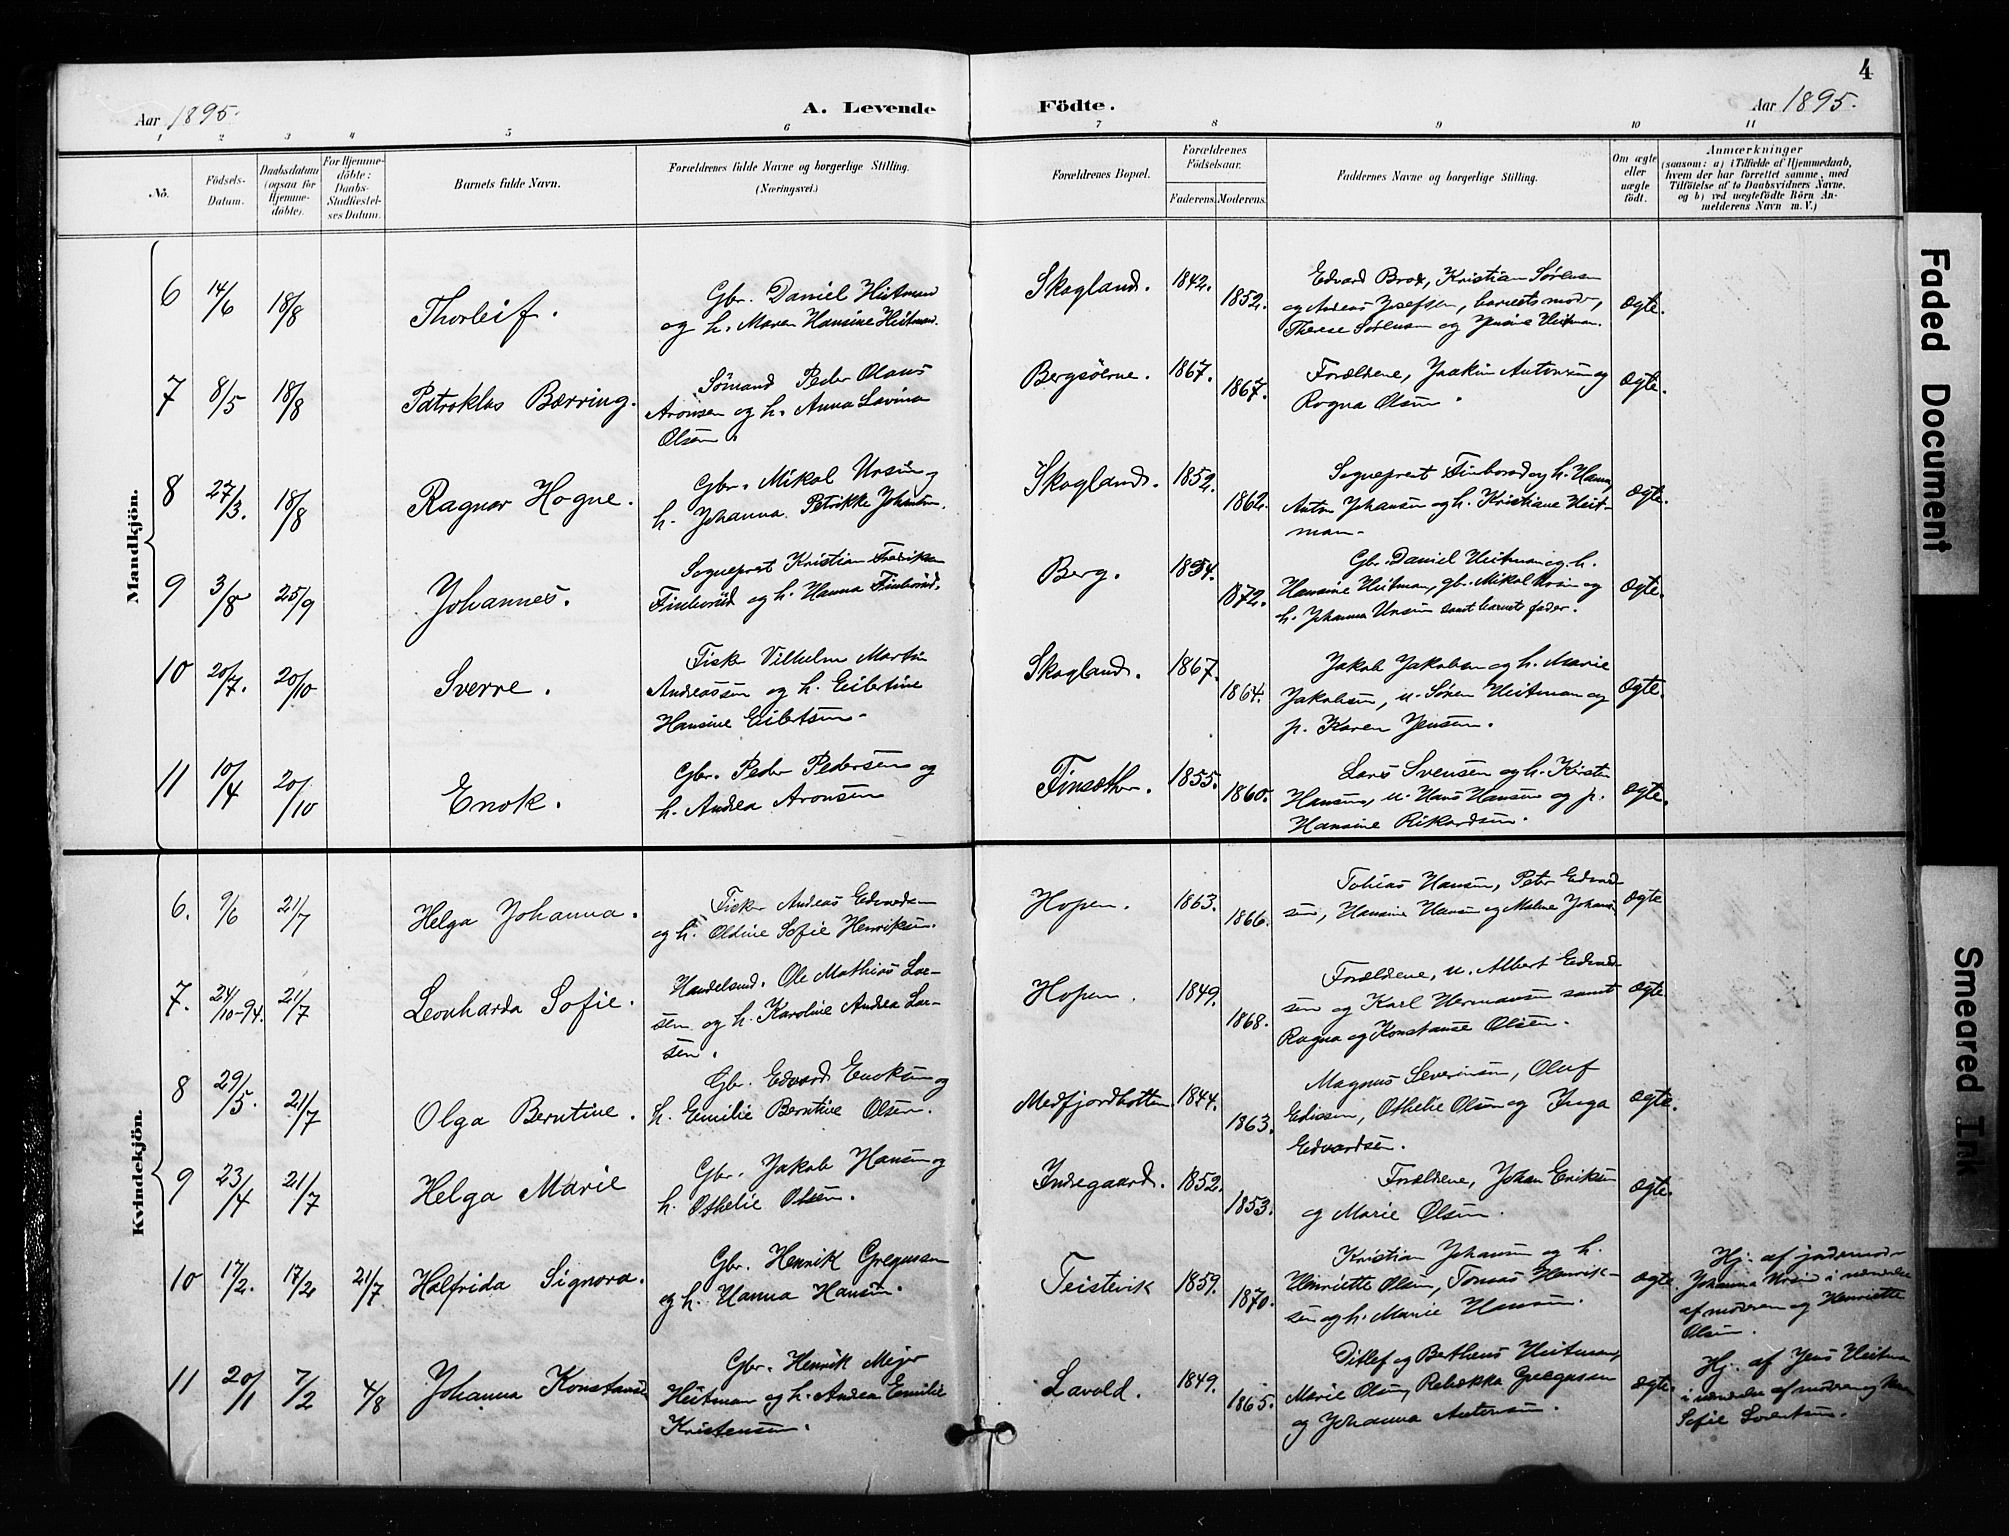 4
Aar 1895.
A. Levende Födte.
Aar 1895.
1 2 3 4 5 6 7 8 9 10 11
No.
Födsels-
Datum.
Daabsdatum
(ogsaa for
Hjemme-
döbte).
For Hjemme-
döbte:
Daabs-
Stadfæstel-
ses Datum.
Barnets fulde Navn.
Forældrenes fulde Navne og borgerlige Stilling.
(Næringsvei.)
Forældrenes Bopæl.
Forældrenes
Födselsaar.
Faderens.
Moderens.
Faddernes Navne og borgerlige Stilling.
Om ægte
eller
uægte
født.
Anmærkninger
(saasom: a) i Tilfælde af Hjemmedaab,
hvem der har forrettet samme, med
Tilföielse af to Daabsvidners Navne,
og b) ved uægtefödte Börn An-
melderens Navn m. V.)
Mandkjön.
6 14/6 18/8 Thorleif.
Gbr. Daniel Heitman
og h. Maren Hansine Heitman.
Skogland. 1842. 1852.
Edvard Brox, Kristian Sørensen
og Andreas Josefsen, barnets moder,
Therese Sørensen og Jensine Heitman.
ægte.
7 8/5 18/8 Patroklas Barring.
Sömand Peder Olaus
Aronsen og h. Anna Lavina
Olsen.
Bergsöerne. 1867. 1867.
Forældrene, Joakim Antonsen og
Ragna Olsen.
ægte.
8 27/3. 18/8 Ragnar Hogne.
Gbr. Mikal Ursin og
h. Johanna Petrikke Johansen.
Skogland. 1852. 1862.
Sogneprest Finborud og h. Hanna,
Anton Johansen og h. Kristiane Heit-
man.
ægte.
9 3/8 25/9 Johannes.
Sogneprest Kristian Fredriksen
Finborud og h. Hanna Finborud.
Berg. 1854. 1872.
Gbr. Daniel Heitman og h.
Hansine Heitman, gbr. Mikal Ursin og
h. Johanna Ursin samt barnets fader.
ægte.
10 20/7. 20/10 Sverre.
Fisker Vilhelm Martin
Andreassen og h. Eilertine
Hansine Eilertsen.
Skogland. 1867. 1864.
Jakob Jakobsen og h. Marie
Jakobsen, u. Søren Heitman og
p. Karen Jensen.
ægte.
11 10/4 20/10 Enok.
Gbr. Peder Pedersen og
h. Andrea Aronsen
Finsæther. 1855. 1860.
Lars Svensen og h. Kirstin
Hansen, u. Hans Hansen og p.
Hansine Rikardsen.
ægte.
Kvindekjön.
6. 9/6 21/7 Helga Johanna.
Fisker Andreas Edvardsen
og h. Oldine Sofie Henriksen.
Hopen. 1863. 1866.
Tobias Hansen, Peter Edvard-
sen, Hansine Hansen og Maline Johansen
ægte
7. 24/10-94. 21/7 Leonharda Sofie.
Handelsmd. Ole Mathias Lar-
sen og h. Karoline Andrea Lar-
sen.
Hopen. 1849. 1868.
Forældrene, u. Albert Edvard-
sen og Karl Hermansen samt
Ragna og Konstanse Olsen.
ægte
8 29/5. 21/7 Olga Berntine.
Gbr. Edvard Enoksen og
h. Emilie Berntine Olsen.
Medfjordbotten. 1844. 1863.
Magnus Severinsen, Oluf
Edissen, Othelie Olsen og Inga
Edvardsen.
ægte.
9 23/4 21/7 Helga Marie
Gbr. Jakob Hansen og
h. Othelie Olsen.
Indregaard. 1852. 1853.
Forældrene, Johan Eriksen
og Marie Olsen.
ægte.
10 17/2. 17/2 21/7 Halfrida Signora.
Gbr. Henrik Gregussen
og h. Hanna Hansen.
Teistevik 1859. 1870.
Kristian Johansen og h.
Henriette Olsen, Tomas Henrik-
sen og h. Marie Hansen.
ægte.
Hj. af jordemoder
Johanna Ursin i nærværelse
af moderen og Henriette
Olsen.
11 20/1 7/2 4/8 Johanna Konstanse
Gbr. Henrik Mejer
Heitman og h. Andrea Emilie
Kristensen.
Lavold. 1849. 1865.
Ditlef og Bertheus Heitman,
Marie Olsen, Rebekka Gregussen
og Johanna Antonsen.
ægte.
Hj. af Jens Heitman
i nærværelse af moderen og
Sofie Lorentsen.
Faded Document
Smeared Ink